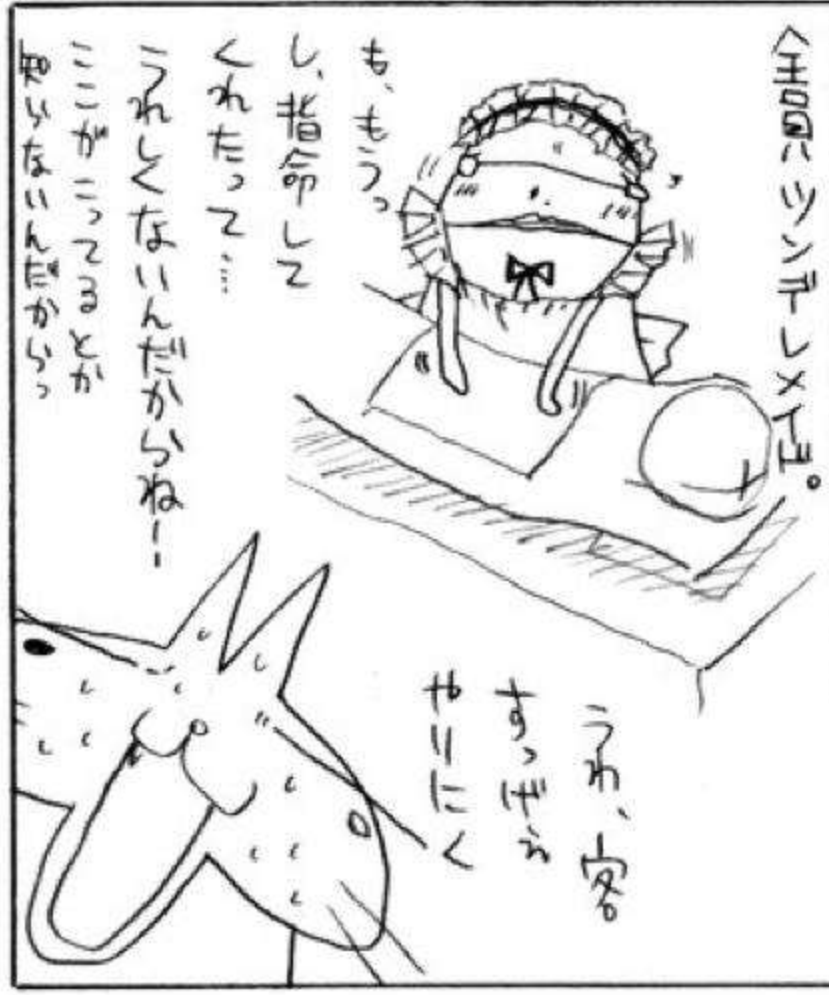 全員ツンデレメイド。
も、もうっ
し、指命して
くれたって…
うれしくないんだからねー
ここがこってるとか
知らないんだからっ
うわ、客
すっげえ
やりにく